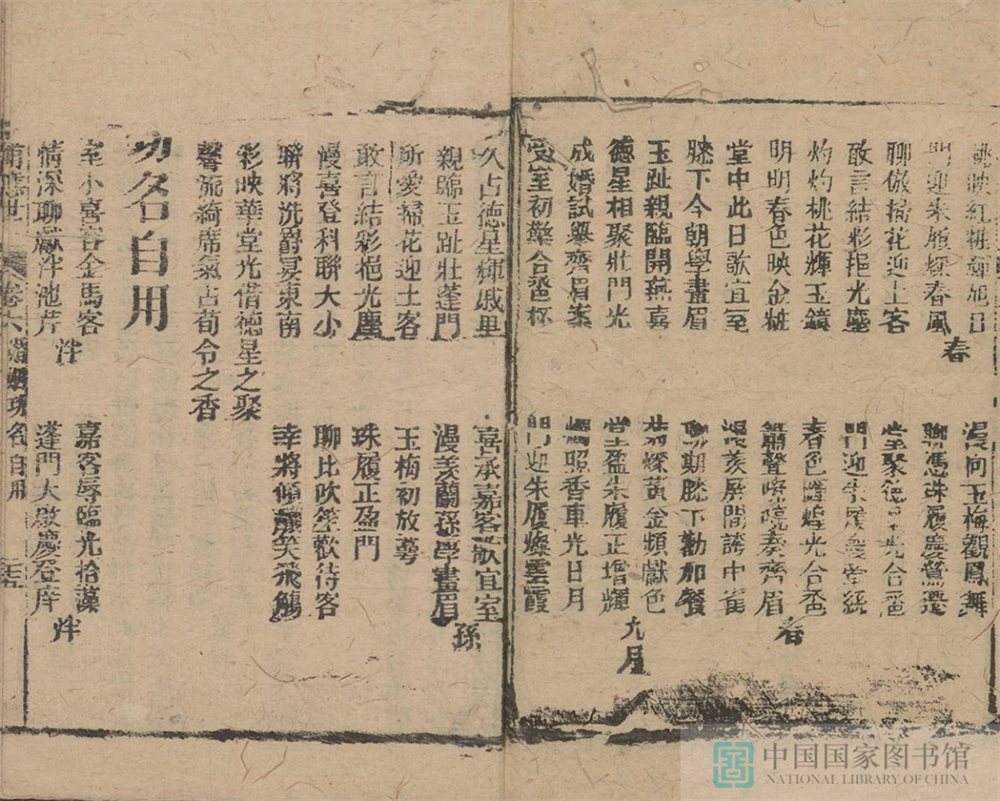 桃映紅粧輝旭日
漫向玉梅觀鳳舞
門迎朱履燦春風 春
聊憑珠履慶鶯遷
聊倣掃花迎上客
堂聚德星光合卺
敢言結彩拒光塵
門迎朱履慶堂
灼灼桃花輝玉鏡
春色輝煌光合卺 春
明明春色映金粧
簫聲嘹喨奏齊眉
堂中此日歌宜室
羨屏間誇中雀
膝下今朝學畫眉
聊期膝下勸加餐
玉趾親臨開燕喜
燦黃金頻獻色
德星相聚壯門光
堂盈朱履正增輝 九月
成婚試舉齊眉案
照香車光日月
受室初擎合卺杯
門迎朱履燦雲霞
久占德星輝戚里
喜承嘉客歌宜室
親臨玉趾壯蓬門
漫羨蘭孫學畫眉 孫
所愛掃花迎上客
玉梅初放蕚
敢言結彩挹光塵
珠履正盈門
慢喜登科聯大小
聊比吹笙歡待客
聯將洗爵宴東南
幸將傾蘸笑飛觴
彩映華堂光借德星之聚
馨流綺席氣占荀令之香
功名自用
室小喜容金馬客
嘉客辱臨光拾藻
情深聊獻泮池芹 泮
蓬門大啟慶登庠 泮
應世 卷六 婚姻功名自用 三五
中国国家图书馆
NATIONAL LIBRARY OF CHINA